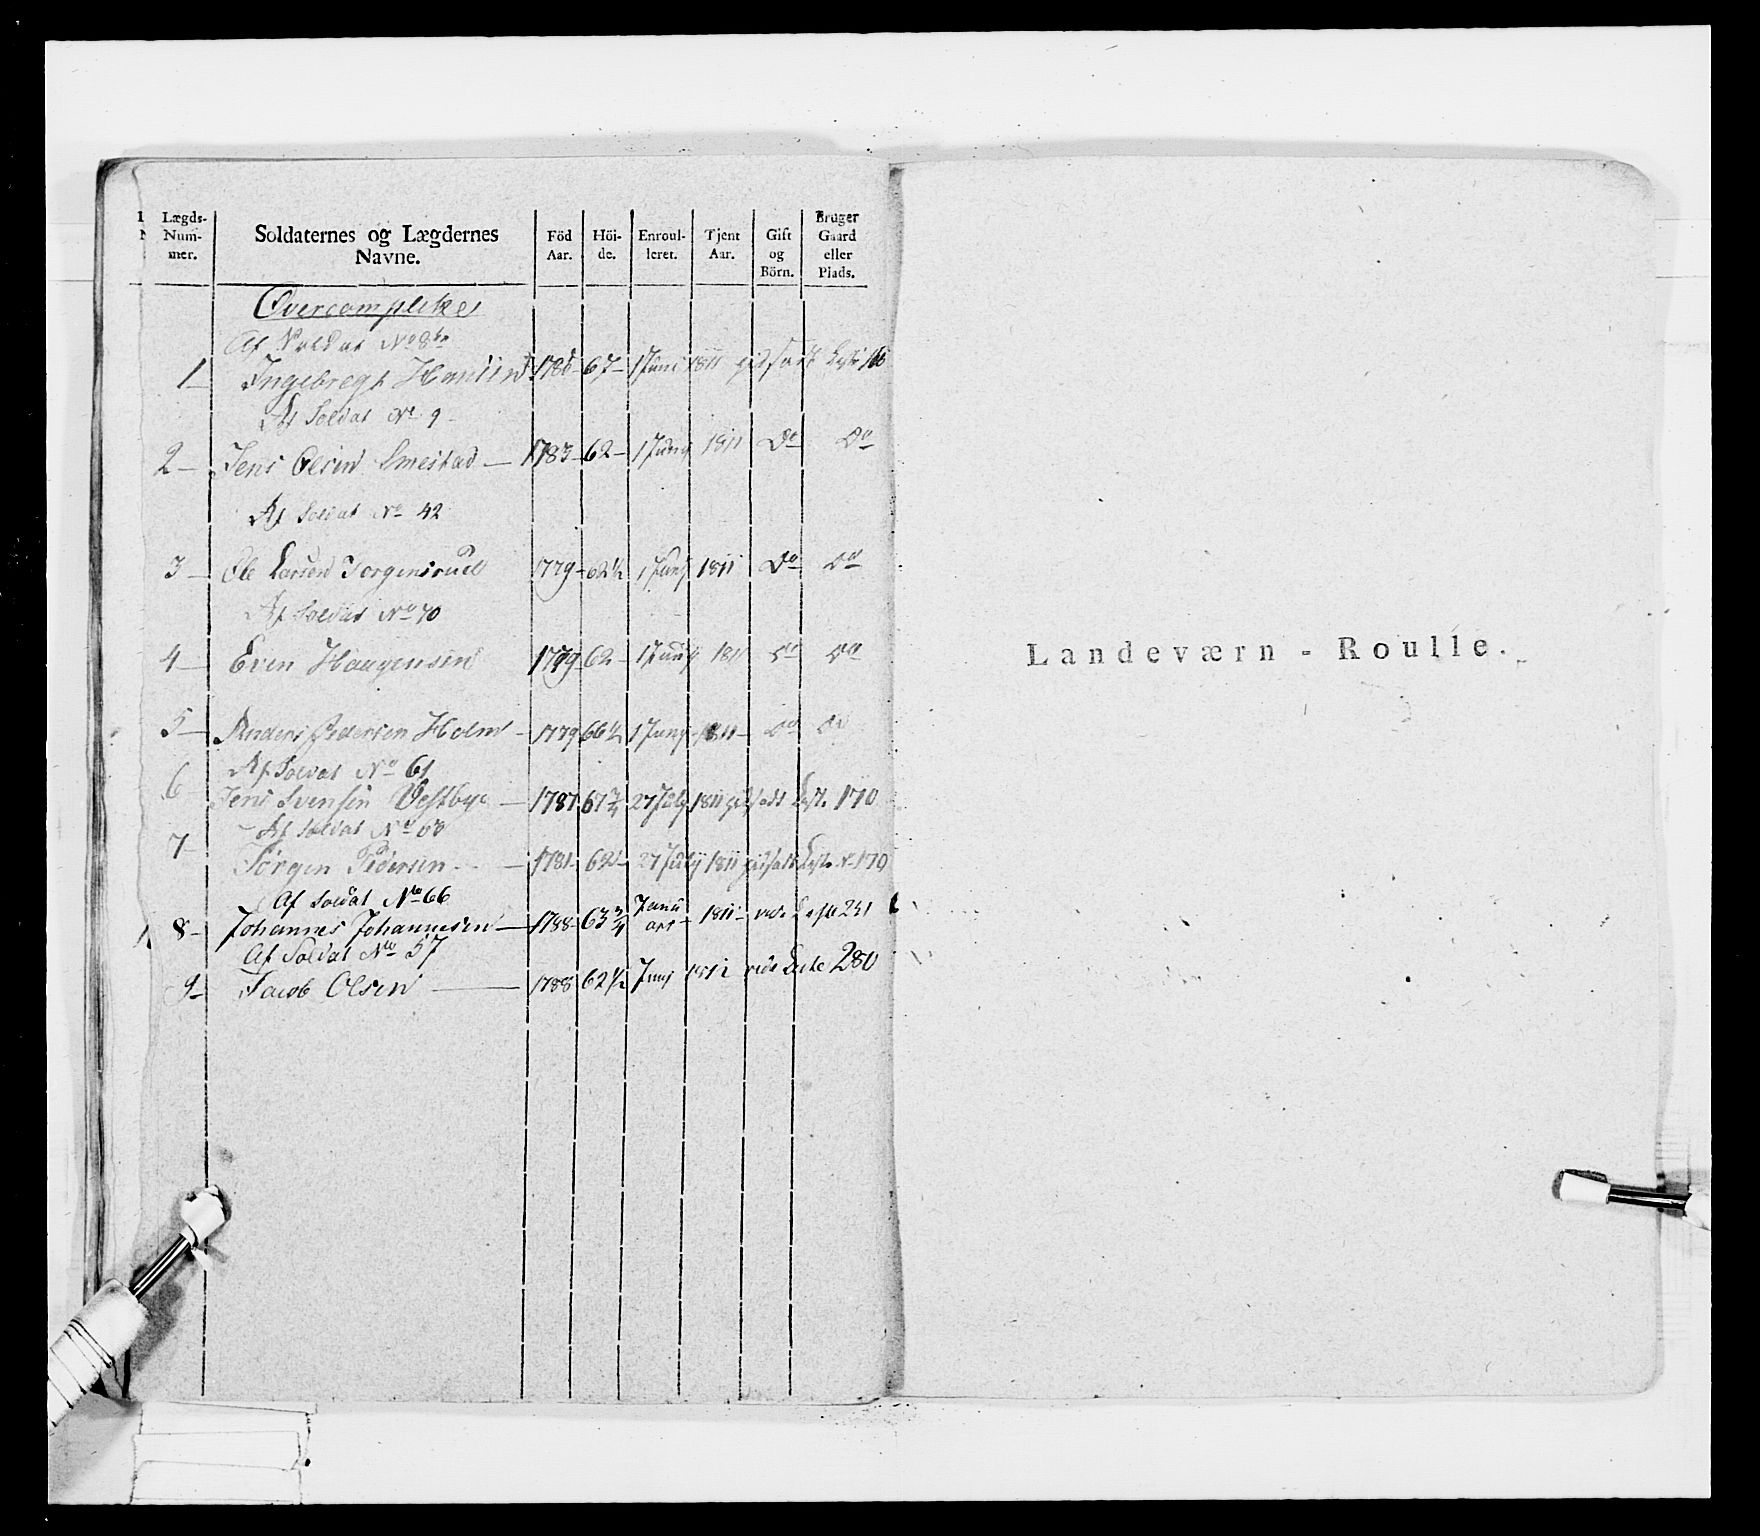 Lægds-Num-mer. Soldaternes og Lægdernes Navne. Föd Aar. Höi-de. Enroul-leret. Tjent Aar. Gift og Börn. Bruger Gaard eller Plads.
Overcomplete
Af Soldat No 8
1 Ingebregt Hansen 67 1 Juni 1811
Af Soldat No 9
2 Jens Olsen Smestad 1783 62 1 Juny 1811 Do Do
Af Soldat No 42
3 Ole Larsen Torgensrud 1779 62½ 1 Juny 1811 Do Do
Af Soldat No 70
4 Even Haagensen 1779 62 1 Juny 1811 Do Do
5 Anders Pedersen Holm 1779 66½ 1 Juny 1811 Do Do
Af Soldat No 61
6 Jens Svensen Vestbye 1787 67¾ 27 July 1811 Liste 170
Af Soldat No
7 Jörgen Pedersen 1781 62 27 July 1811 Liste No 170
Af Soldat No 66
8 Johannes Johannesen 1788 63¾ Januari 1811 vide Liste 251
Af Soldat No 57
9 Jacob Olsen 1788 62½ Juny vide Liste 280
Landeværn - Roulle.